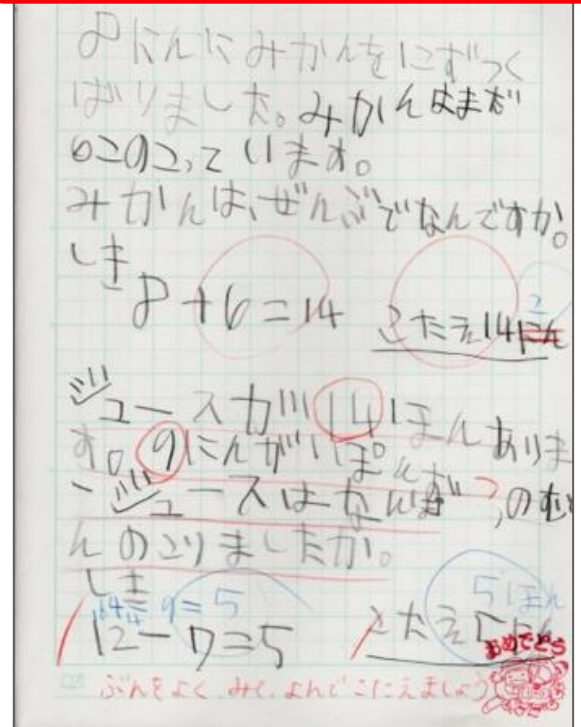 8にんにみかんをにずつく
ばりました。みかんはまだ
6このこっています。
みかんは、ぜんぶでなんですか。
しき
8+6=14
こたえ14にん
こ
ジュースが14ほんありま
す。9にんがいぽんず
つのむ
とジュースはなんぼ
んのこりましたか。
しき
14-9=5
12-7=5
5ほん
こたえ5
おめでとう
ぶんをよく、みて、よんでこたえましょう